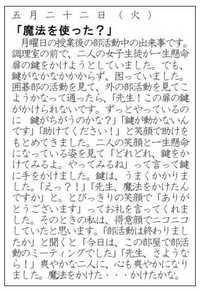 五月二十二日(火)
「魔法を使った?」
月曜日の授業後の部活動中の出来事です。
調理室の前で、二人の女子生徒が一生懸命
扉の鍵をかけようとしていました。でも、
鍵がなかなかかからず、困っていました。
囲碁部の活動を見て、外の部活動を見てこ
ようかなって通ったら、「先生!この扉の鍵
がかけられないです。ずっとやっているの
に 鍵がちがうのかな?」「鍵が動かないん
です」「助けてください!」と笑顔で助けを
もとめてきました。二人の笑顔と一生懸命
になっている姿を見て「どれどれ、鍵をか
けてみるよ。やってみるね」って言って鍵
に手をかけました。鍵は、うまくかかりま
した。「えっ?!」「先生、魔法をかけたん
ですか」と、とびっきりの笑顔で「ありが
とうございます」ってお礼を言ってくれま
した。そのときの私は、得意顔でニコニコ
していたと思います。「部活動は終わりまし
たか」と聞くと「今日は、この部屋で部活
のミーティングでした」「先生、さような
ら!」爽やかな二人に、心も爽やかになり
ました。魔法をかけた・・・かけたかな。